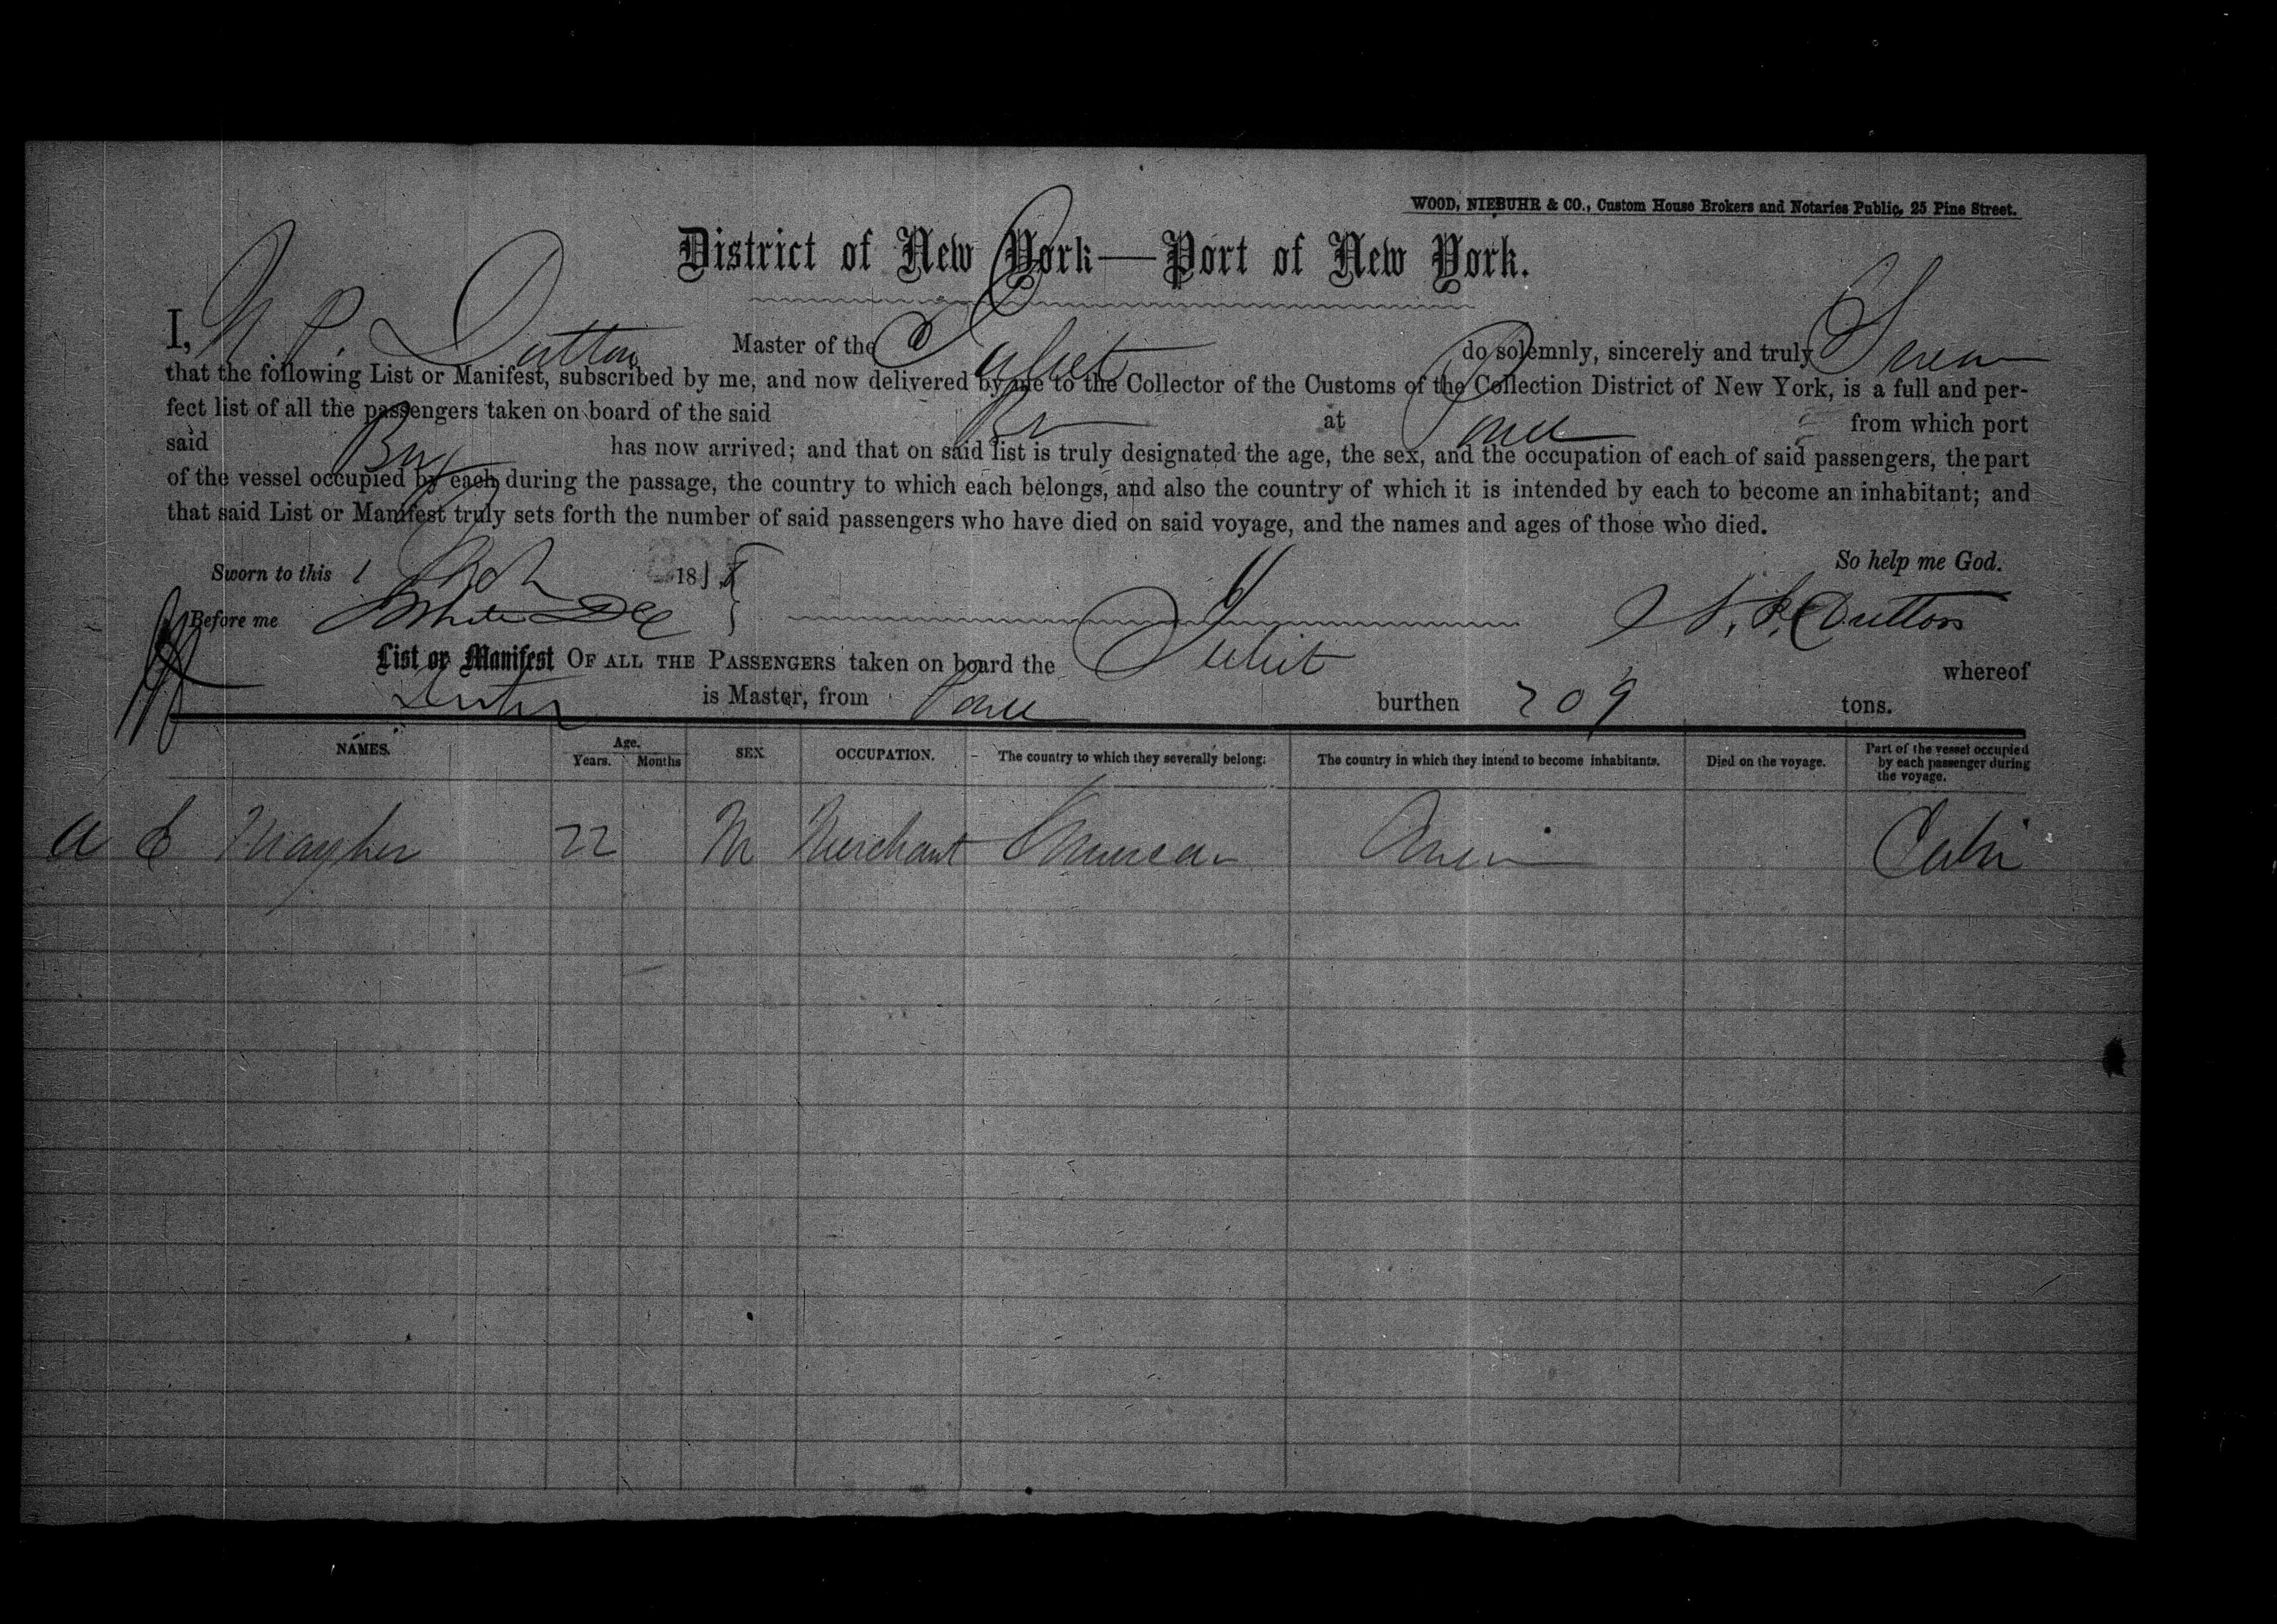 WOOD, NIEBUHR & CO., Custom House Brokers and Notaries Public, 25 Pine Street.
District of New York—Port of New York.
I, N P. Dutton Master of the do solemnly, sincerely and truly Swear
that the following List or Manifest, subscribed by me, and now delivered by me to the Collector of the Customs of the Collection District of New York, is a full and per-
fect list of all the passengers taken on board of the said at Ponce from which port
said Brig has now arrived; and that on said list is truly designated the age, the sex, and the occupation of each of said passengers, the part
of the vessel occupied by each during the passage, the country to which each belongs, and also the country of which it is intended by each to become an inhabitant; and
that said List or Manifest truly sets forth the number of said passengers who have died on said voyage, and the names and ages of those who died.
So help me God.
Sworn to this 1 18
Before me N. P. Dutton
List or Manifest OF ALL THE PASSENGERS taken on board the whereof
Dutton is Master, from Ponce burthen 209 tons.
NAMES. Age. Years. Months SEX. OCCUPATION. The country to which they severally belong. The country in which they intend to become inhabitants. Died on the voyage. Part of the vessel occupied by each passenger during the voyage.
A E Mayher 22 M Merchant American Amer Cabin